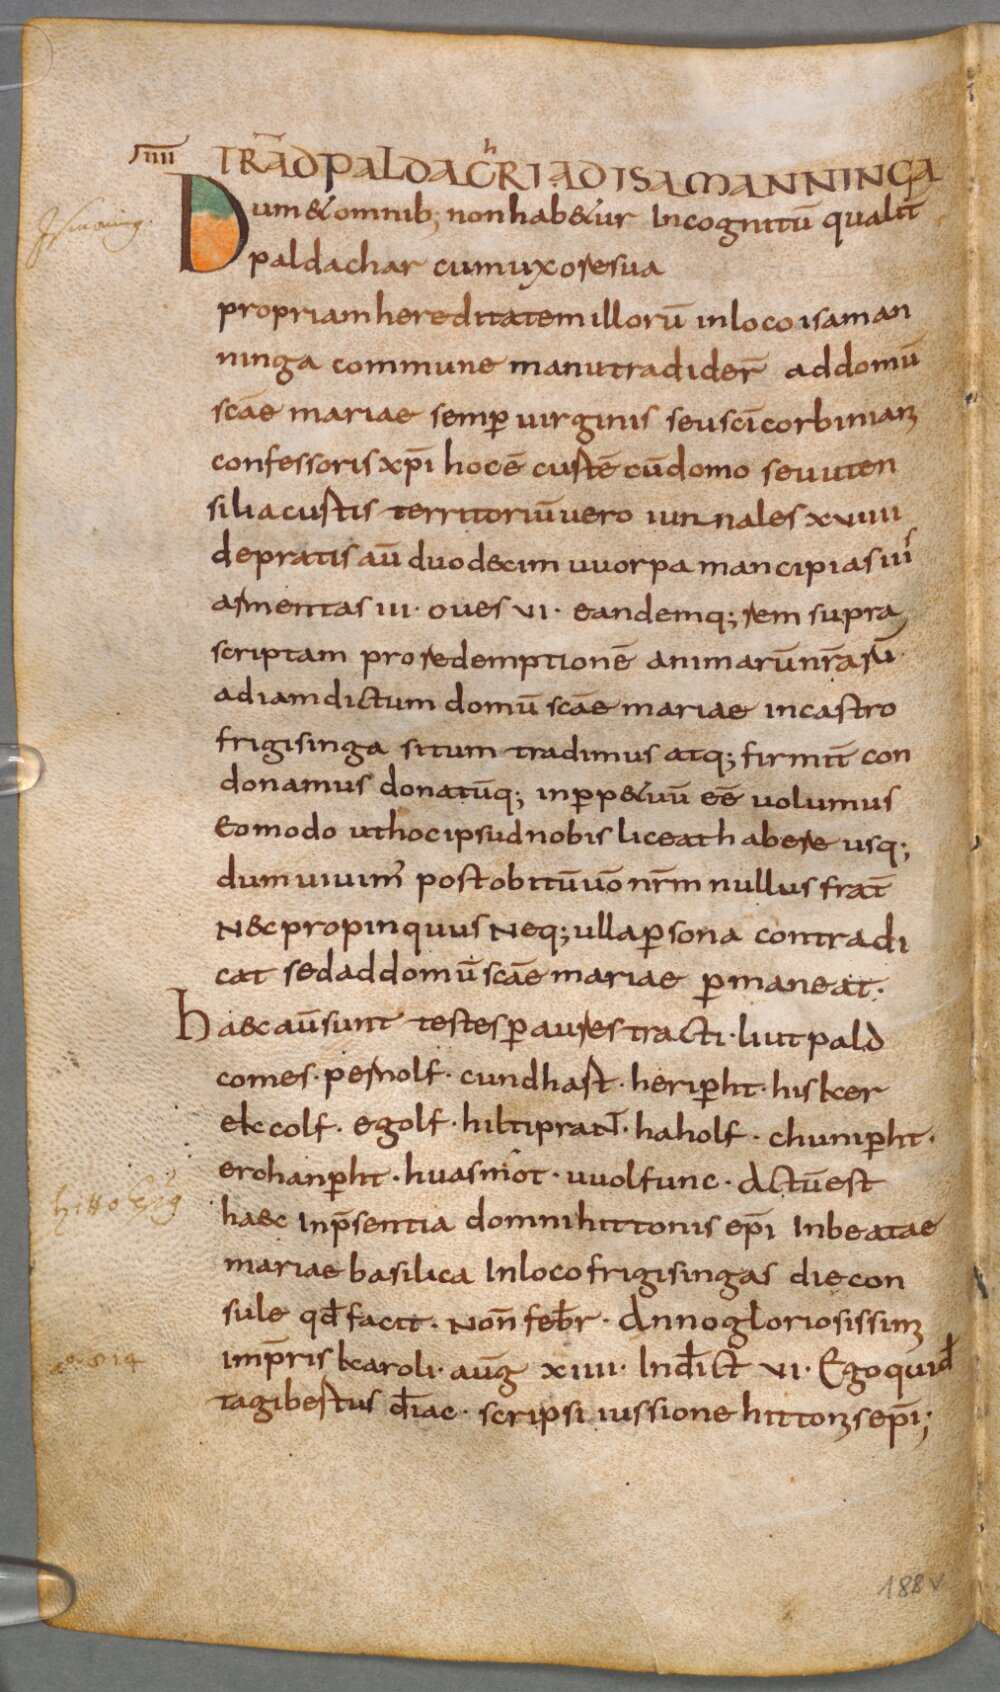 IIII TRAD PALDACHRI AD ISAMANNINGA
Dum & omnib; non hab&ur Incognitū qualit̄
Ismaning.
paldachar cum uxore sua
propriam hereditatem illorū in loco isaman
ninga commune manu tradider̄ ad domū
scāe mariae semp uirginis seu sci corbiniani
confessoris xp̄i hoc ē custē cū domo seu uten
silia custis territoriū uero iurnales xviiii
de pratis aū duodecim uuorpa mancipias iii
armentas iii· oues vi· eandemq; rem supra
scriptam pro redemptionē animarū nr̄arū·
ad iam dictum domū scāe mariae in castro
frigisinga situm tradimus atq; firmit̄ con
donamus donatūq; in perp&uū eē uolumus
eo modo ut hoc ipsud nobis liceat habere usq;
dum uiuim' post obitū uō nr̄m nullus frat̄
N&c propinquus Neq; ulla psona contradi
cat sed ad domū scāe mariae pmaneat·
haec aū sunt testes p aures tracti· liutpald
comes· pernolf· cundhart· heripht· hisker
ekcolf· egolf· hiltipraNT· haholf· chunipht·
erchanpht· huasmot· uuolfunc· Actū est
hitto Ep̄g
haec In p̄sentia domni hittonis ep̄i In beatae
mariae basilica In loco frigisingas die con
sule qđ facit· Noñ febr̄· Anno gloriosissimi
imp̄ris karoli· auḡ xiiii· Ind̄ict vi· Ego quid̄
ao. 814
tagibertus d̄iac· scripsi iussione hittonis ep̄i;
188v